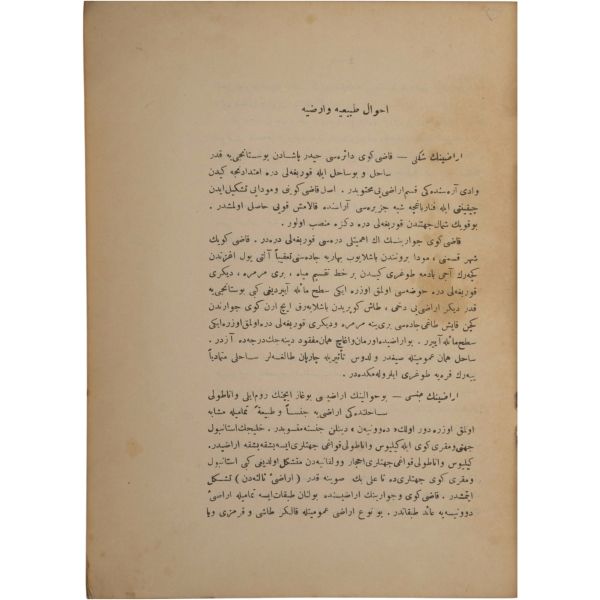 احوال طبيعيه و ارضيه
اراضينك شكلى — قاضى كوى دائره‌سى حيدر پاشادن بوستانجى‌يه قدر
ساحل و بو ساحل ايله قوربغه‌لى دره امتدادنجه كيدن
وادى آره‌سنده‌كى قسم اراضى‌يى محتويدر . اصل قاضى كوينى و مودايى تشكيل ايدن
چيقينتى ايله فنارباغچه شبه جزيره‌سى آراسنده قالامش قويى حاصل اولمشدر .
بو قويك شمال جهتندن قوربغه‌لى دره دكزه منصب اولور .
قاضى كوى جوارينك اك اهميتلى دره‌سى قوربغه‌لى دره‌در . قاضى كويك
شهر قسمنى ، مودا برونندن باشلايوب بهاريه جاده‌سنى تعقيباً آلتى يول اغزندن
كچه‌رك آجى بادمه طوغرى كيدن بر خط تقسيم مياه ، برى مرمره ، ديكرى
قوربغه‌لى دره حوضه‌سى اولمق اوزره ايكى سطح مائله آييرديغى كبى بوستانجى‌يه
قدر ديكر اراضى‌يى دخى ، طاش كوپريدن باشلايه‌رق ايچ ارن كوى جوارندن
كچن قايش طاغى جاده‌سى برى ينه مرمره و ديكرى قوربغه‌لى دره اولمق اوزره ايكى
سطح مائله آييرر . بو اراضيده اورمان و آغاچ همان مفقود دينه‌جك درجه‌ده آزدر .
ساحل همان عموميتله صيغدر و لدوس تأثيريله چارپان طالغه‌لر ساحلى متمادياً
ييه‌رك قره‌يه طوغرى ايلروله‌مكده‌در .
اراضينك جنسى — بو حوالينك اراضيسى بوغاز ايچنك روم ايلى و اناطولى
ساحلنده‌كى اراضى‌يه جنساً و طبيعةً تماميله مشابه
اولمق اوزره دور اولك « ده‌وونيه‌ن » دينلن جنسنه منسوبدر . خليجك استانبول
جهتى و مقرى كوى ايله كيليوس و اناطولى قواغى جهتلرى ايسه بشقه بشقه اراضيدر.
كيليوس و اناطولى قواغى جهتلرى احجار وولقانيه‌دن متشكل اولديغى كبى استانبول
و مقرى كوى جهتلرى ده تا على بك صوينه قدر ( اراضىٔ ثالثه‌دن ) تشكل
ايتمشدر . قاضى كوى و جوارينك اراضيسنده بولنان طبقات ايسه تماميله اراضىٔ
دوونيه‌يه عائد طبقاتدر . بو نوع اراضى عموميتله قالكر طاشى و قرمزى ويا